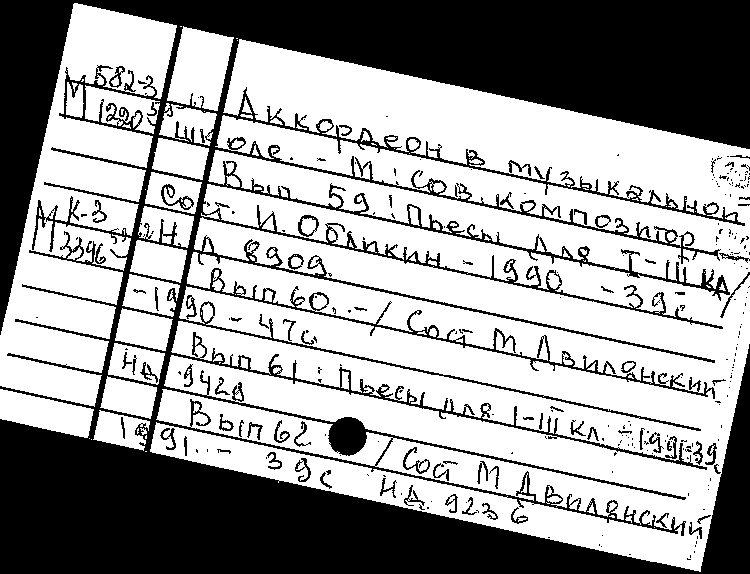 М 582-3
1220 59-62
Аккордеон в музыкальной
школе. - М.: Сов. композитор,
Вып. 59: Пьесы для I-III кл /
Сост. И. Обликин. - 1990 - 39с.
М К-3
3396 59-62
Н. Д 8909.
Вып 60. - / Сост М. Двилянский
- 1990 - 47с.
Вып 61: Пьесы для I-III кл. - 1991-39с
НД 9429
Вып 62 / Сост М Двилянский
1991. - 39с НД 9236